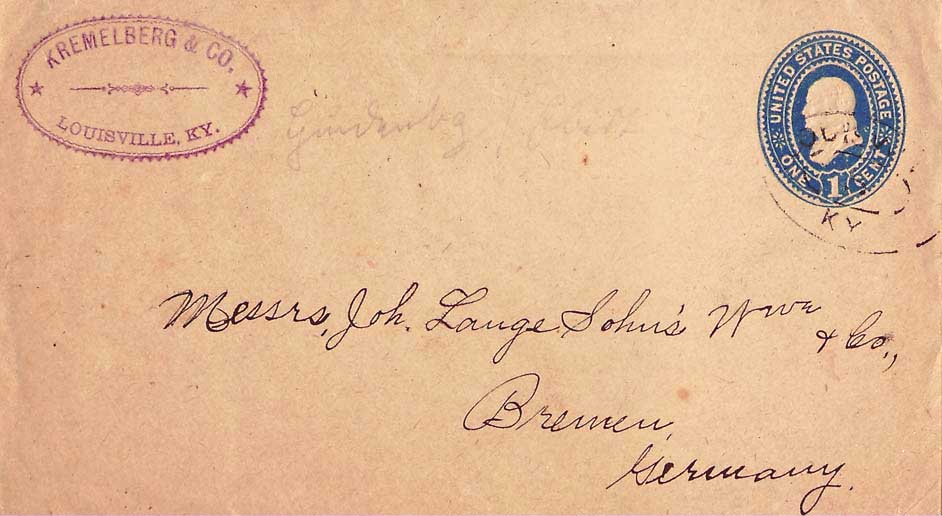 KREMELBERG & CO.
LOUISVILLE, KY.
UNITED STATES POSTAGE
ONE 1 CENT
KY
Messrs, Joh. Lange Sohn's Wwe
& Co.,
Bremen,
Germany.